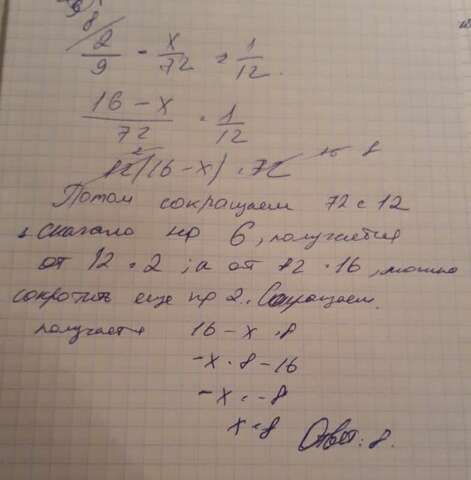 8/
2/9 - x/72 = 1/12.
16 - x/72 = 1/12
12(16 - x) = 72 8
Потом сокращаем 72 с 12
сначало на 6, получается
от 12 = 2, а от 72 = 16, можно
сократить еще на 2. Сокращаем.
получает
16 - x = 8
-x = 8 - 16
-x = -8
x = 8 Ответ: 8.